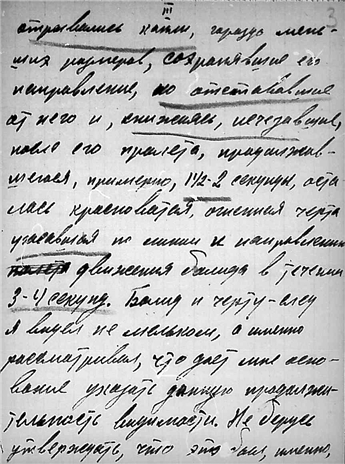 III
3
отрывались капли, гораздо мень-
ших размеров, сохранявшие его
направление, но отстававшие
от него и, снижаясь, исчезавшие,
после его пролета, продолжав-
шегося, примерно, 1½-2 секунды, оста
лась красноватая, огненная черта
угасавшая по линии и направлению
движения болида в течении
3-4 секунд. Болид и черту-след
я видел не мельком, а именно
рассматривая, что дает мне осно-
вание указать данную продолжи-
тельность видимости. Не берусь
утверждать, что это был, именно,